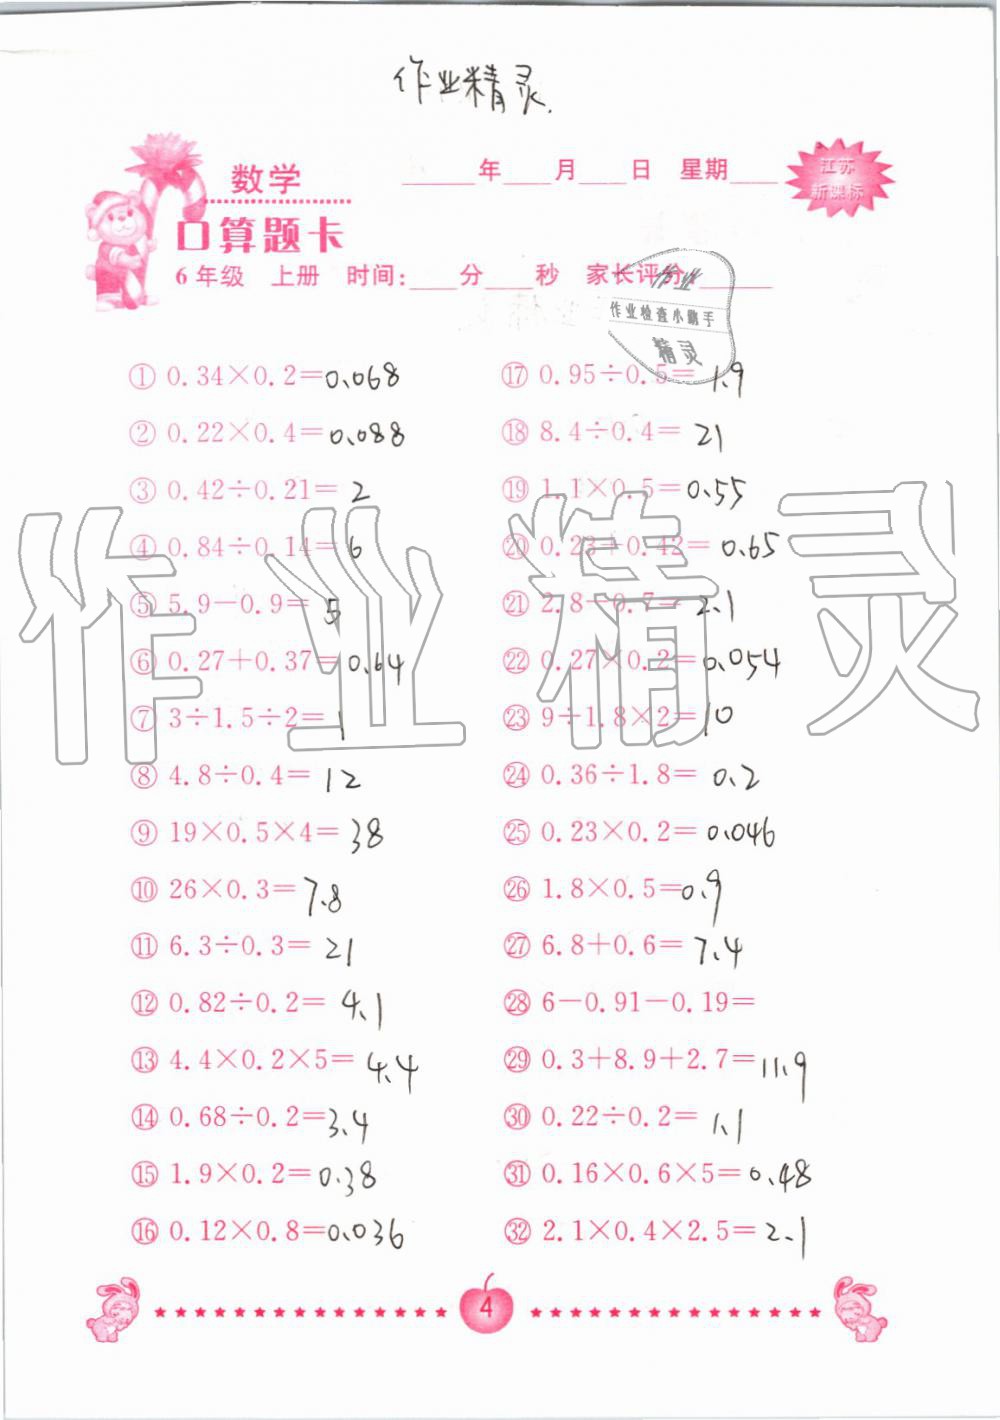 作业精灵.
数学
年 月 日 星期
江苏
新课标
口算题卡
6年级 上册 时间: 分 秒 家长评分:
作业
作业检查小助手
精灵
① 0.34×0.2=0.068
② 0.22×0.4=0.088
③ 0.42÷0.21=2
④ 0.84÷0.14=6
⑤ 5.9-0.9=5
⑥ 0.27+0.37=0.64
⑦ 3÷1.5÷2=1
⑧ 4.8÷0.4=12
⑨ 19×0.5×4=38
⑩ 26×0.3=7.8
⑪ 6.3÷0.3=21
⑫ 0.82÷0.2=4.1
⑬ 4.4×0.2×5=4.4
⑭ 0.68÷0.2=3.4
⑮ 1.9×0.2=0.38
⑯ 0.12×0.8=0.036
⑰ 0.95÷0.5=1.9
⑱ 8.4÷0.4=21
⑲ 1.1×0.5=0.55
⑳ 0.23+0.42=0.65
㉑ 2.8-0.7=2.1
㉒ 0.27×0.2=0.054
㉓ 9÷1.8×2=10
㉔ 0.36÷1.8=0.2
㉕ 0.23×0.2=0.046
㉖ 1.8×0.5=0.9
㉗ 6.8+0.6=7.4
㉘ 6-0.91-0.19=
㉙ 0.3+8.9+2.7=11.9
㉚ 0.22÷0.2=1.1
㉛ 0.16×0.6×5=0.48
㉜ 2.1×0.4×2.5=2.1
作业精灵
4